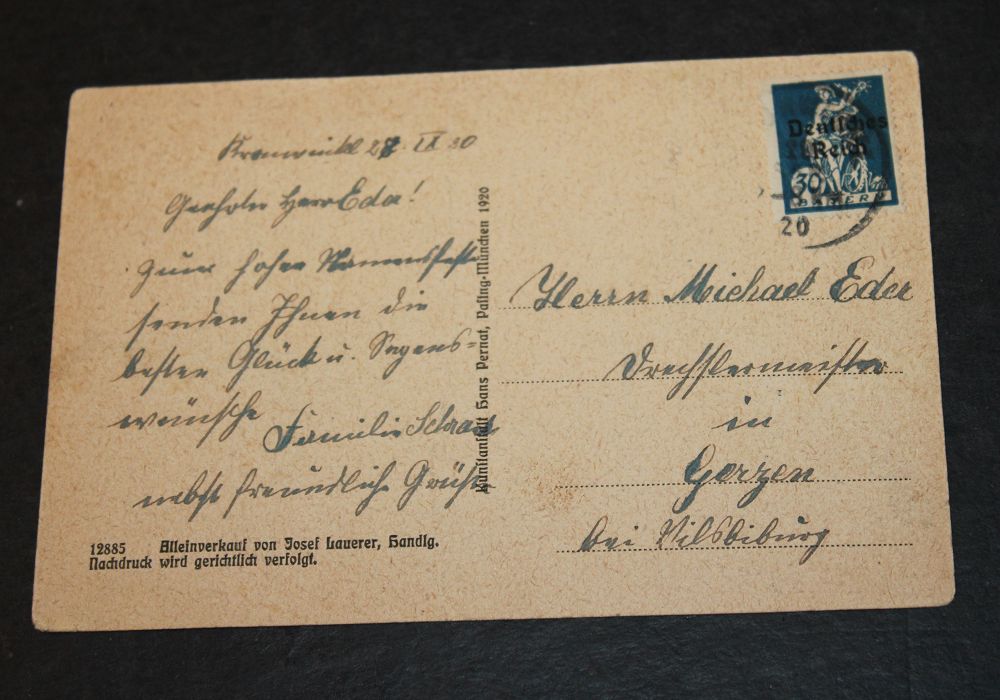 Kronwinkl 27. IX 20
Geehrter Herr Eda!
Zum hohen Namensfeste
senden Ihnen die
besten Glück u. Segens=
wünsche
Familie
nebst freundliche Grüße
12885 Alleinverkauf von Josef Lauerer, Handlg.
Nachdruck wird gerichtlich verfolgt.
Kunstanstalt Hans Pernat, Pasing-München 1920
Deutsches
Reich
30
BAYERN
20
Herrn Michael Eder
Drechslermeister
in
Gerzen
bei Vilsbiburg